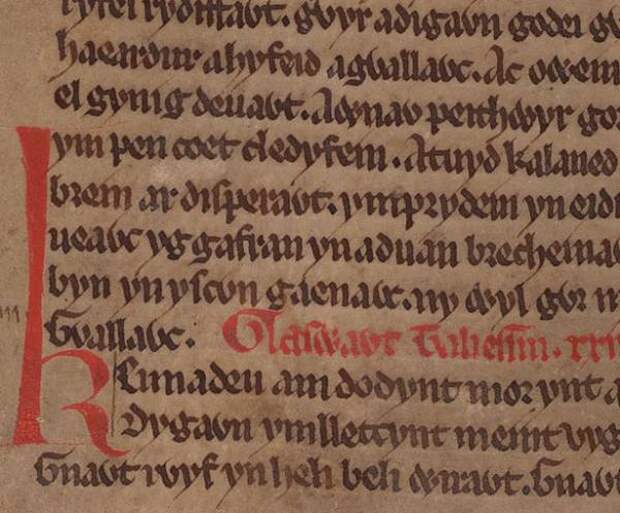 ryfel rydiffaỽt. gỽyr adigaỽn godei gỽ
haeardur ahyfeid agỽallaỽc. Ac oỽein
elgynig deuaỽt. Aỽnaỽ peithỽyr gor
ym pen coet cledyfein. Atuyd kalaned
brein ar disperaỽt. ymprydein yn eidi
ueaỽc yg gafran yn aduan brecheinaỽ
byn ynyscỽn gaenaỽc. ny ỽyl gỽr n
Gỽallaỽc. Glasỽaỽt Taliessin. xxi
Kennadeu am dodynt mor ynt a
Dygaỽn ymlletcynt meint vyg
Gnaỽt rỽyf yn heli beli ỽiraỽt. Gnaỽt